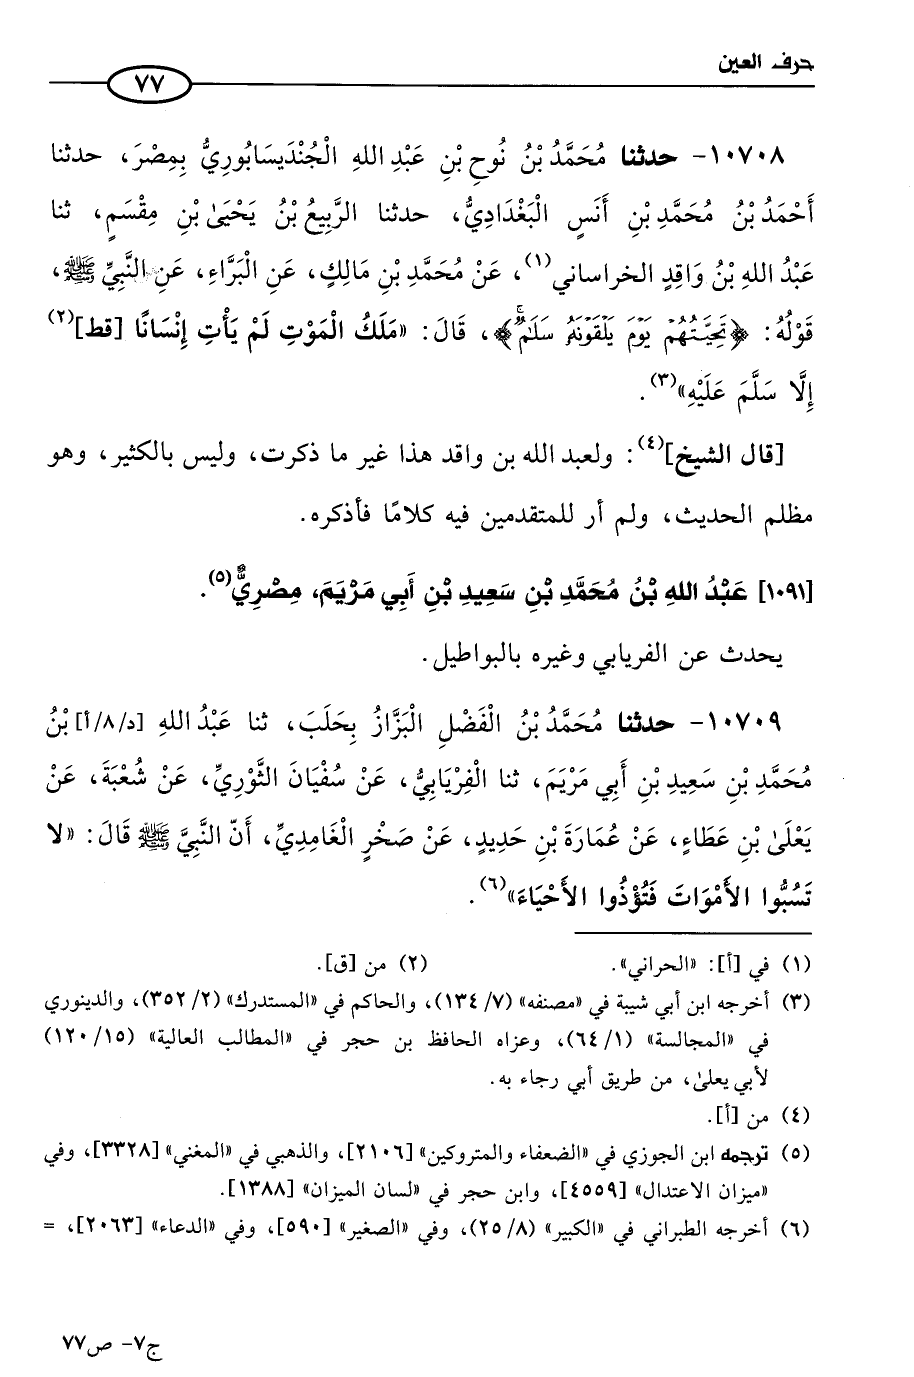 حرف العين
٧٧
١٠٧٠٨- حدثنا مُحَمَّدُ بْنُ نُوحِ بْنِ عَبْدِ اللهِ الْجُنْدَيسَابُورِيُّ بِمِصْرَ، حدثنا
أَحْمَدُ بْنُ مُحَمَّدِ بْنِ أَنَسٍ الْبَغْدَادِيُّ، حدثنا الرَّبِيعُ بْنُ يَحْيَىٰ بْنِ مِقْسَمٍ، ثنا
عَبْدُ اللهِ بْنُ وَاقِدٍ الخراساني(١)، عَنْ مُحَمَّدِ بْنِ مَالِكٍ، عَنِ الْبَرَّاءِ، عَنِ النَّبِيِّ ﷺ،
قَوْلُهُ: ﴿تَحِيَّتُهُمْ يَوْمَ يَلْقَوْنَهُ سَلَٰمٌۚ﴾، قَالَ: «مَلَكُ الْمَوْتِ لَمْ يَأْتِ إِنْسَانًا [قط](٢)
إِلَّا سَلَّمَ عَلَيْهِ»(٣).
[قال الشيخ](٤): ولعبد الله بن واقد هذا غير ما ذكرت، وليس بالكثير، وهو
مظلم الحديث، ولم أر للمتقدمين فيه كلامًا فأذكره.
[١٠٩١] عَبْدُ اللهِ بْنُ مُحَمَّدِ بْنِ سَعِيدِ بْنِ أَبِي مَرْيَمَ، مِصْرِيٌّ(٥).
يحدث عن الفريابي وغيره بالبواطيل.
١٠٧٠٩- حدثنا مُحَمَّدُ بْنُ الْفَضْلِ الْبَزَّازُ بِحَلَبَ، ثنا عَبْدُ اللهِ [د/٨/أ] بْنُ
مُحَمَّدِ بْنِ سَعِيدِ بْنِ أَبِي مَرْيَمَ، ثنا الْفِرْيَابِيُّ، عَنْ سُفْيَانَ الثَّوْرِيِّ، عَنْ شُعْبَةَ، عَنْ
يَعْلَىٰ بْنِ عَطَاءٍ، عَنْ عُمَارَةَ بْنِ حَدِيدٍ، عَنْ صَخْرٍ الْغَامِدِيِّ، أَنَّ النَّبِيَّ ﷺ قَالَ: «لا
تَسُبُّوا الأَمْوَاتَ فَتُؤْذُوا الأَحْيَاءَ»(٦).
(١) في [أ]: «الحراني». (٢) من [ق].
(٣) أخرجه ابن أبي شيبة في «مصنفه» (٧/ ١٣٤)، والحاكم في «المستدرك» (٢/ ٣٥٢)، والدينوري
في «المجالسة» (١/ ٦٤)، وعزاه الحافظ بن حجر في «المطالب العالية» (١٥/ ١٢٠)
لأبي يعلىٰ، من طريق أبي رجاء به.
(٤) من [أ].
(٥) ترجمه ابن الجوزي في «الضعفاء والمتروكين» [٢١٠٦]، والذهبي في «المغني» [٣٣٢٨]، وفي
«ميزان الاعتدال» [٤٥٥٩]، وابن حجر في «لسان الميزان» [١٣٨٨].
(٦) أخرجه الطبراني في «الكبير» (٨/ ٢٥)، وفي «الصغير» [٥٩٠]، وفي «الدعاء» [٢٠٦٣]، =
ج٧- ص٧٧